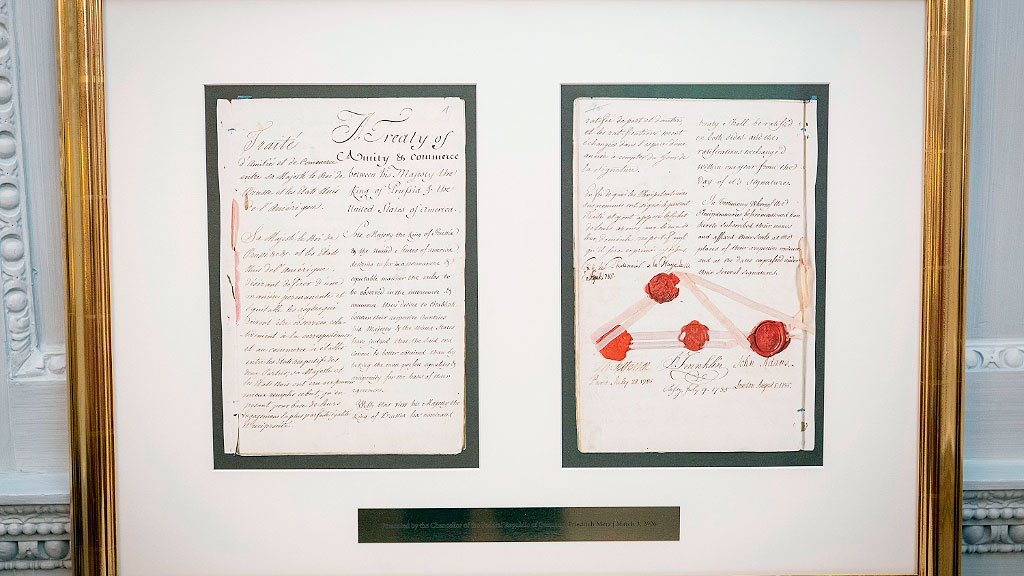 Traité
d'Amitié et de Commerce
entre sa Majesté le Roi de
Prusse et les Etats Unis
de l'Amérique.
Sa Majesté le Roi de
Prusse et les Etats
Unis de l'Amérique
desirant de fixer d'une
maniere permanente et
equitable les regles que
doivent être observées rela-
tivement à la correspondance
et au commerce à établir
entre les Etats respectifs des
deux Parties, Sa Majesté et
les Etats Unis ont cru ne pouvoir
mieux remplir ce but, qu'en
engagemens la plus parfaite égalité
et reciprocité.
A Treaty of
Amity & Commerce
between his Majesty the
King of Prussia & the
United States of America.
His Majesty the King of Prussia
& the United States of America
desiring to fix in a permanent &
equitable manner the rules to
be observed in the intercourse &
commerce they desire to establish
between their respective Countries
his Majesty & the United States
have judged that the said end
cannot be better obtained than by
taking the most perfect equality &
reciprocity for the basis of their
agreement.
With this view his Majesty the
King of Prussia has nominated
ratifié de part et d'autre
et les ratifications seront
échangées dans l'espace d'une
année à compter du jour de
la signature.
treaty shall be ratified
on both sides and the
ratifications exchanged
within one year from the
day of its signature.
In testimony whereof the
Plenipotentiaries before mentioned have
hereto subscribed their names
and affixed their seals at the
places of their respective residence
and at the dates expressed under
their several signatures.
Paris July 28. 1785.
B Franklin
Passy, July 9. 1785
John Adams
London August 5. 1785.
Presented by the Chancellor of the Federal Republic of Germany Friedrich Merz | March 3, 2026